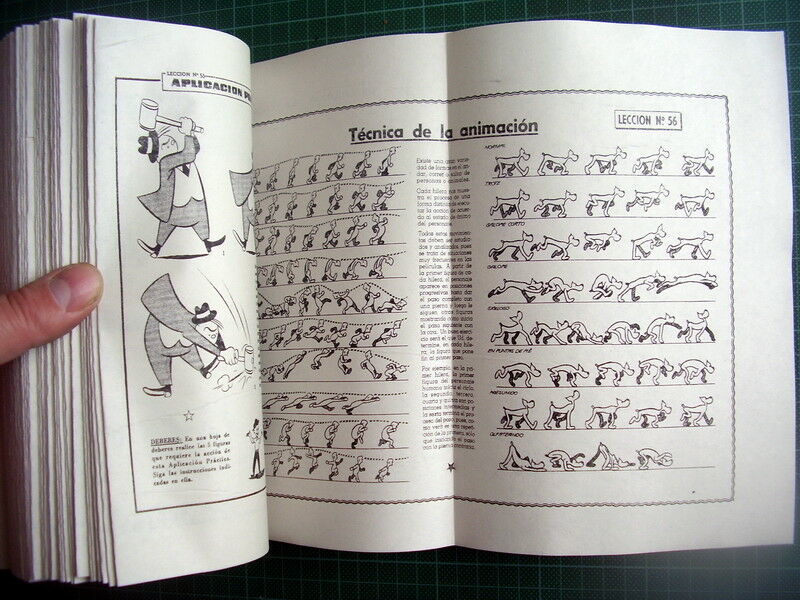 LECCION Nº 55
APLICACION P
DEBERES: En una hoja de
deberes realice las 5 figuras
que requiere la acción de
esta Aplicación Práctica.
Siga las instrucciones indi-
cadas en ella.
Técnica de la animación
LECCION Nº 56
Existe una gran varie-
dad de formas en el an-
dar, correr o saltar de
personas o animales.
Cada hilera nos mues-
tra el proceso de una
forma distinta de ejecu-
tar la acción de acuer-
do al estado de ánimo
del personaje.
Todos estos movimien-
tos deben ser estudia-
dos y analizados, pues
se trata de situaciones
muy frecuentes en las
películas. A partir de
la primera figura de ca-
da hilera, el personaje
aparece en posiciones
progresivas hasta dar
el paso completo con
una pierna y luego le
siguen otras figuras
mostrando cómo inicia
el paso siguiente con
la otra. Un buen ejerci-
cio será el que Ud. de-
termine, en cada hile-
ra, la figura que pone
fin al primer paso.
Por ejemplo, en la pri-
mer hilera, la primer
figura del personaje
humano inicia el ciclo,
la segunda, tercera,
cuarta y quinta son po-
siciones intermedias y
la sexta termina el pro-
ceso del paso, pues, co-
mo verá es una repeti-
ción de la primera, sólo
que iniciando el paso
con la pierna contraria.
NORMAL
TROTE
GALOPE CORTO
GALOPE
EN PUNTAS DE PIE
OLFATEANDO